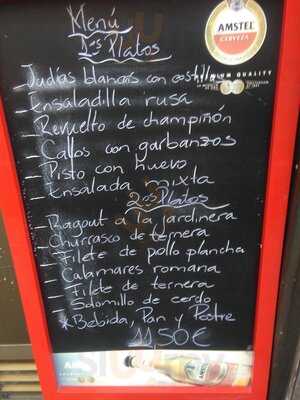 Menú
1os Platos
AMSTEL
CERVEZA
PREMIUM QUALITY
_ Judías blancas con costillas
_ Ensaladilla rusa
_ Revuelto de champiñón
_ Callos con garbanzos
_ Pisto con huevo
_ Ensalada mixta
2os Platos
_ Ragout a la jardinera
_ Churrasco de ternera
_ Filete de pollo plancha
_ Calamares romana
_ Filete de ternera
_ Solomillo de cerdo
* Bebida, Pan y Postre
11,50€